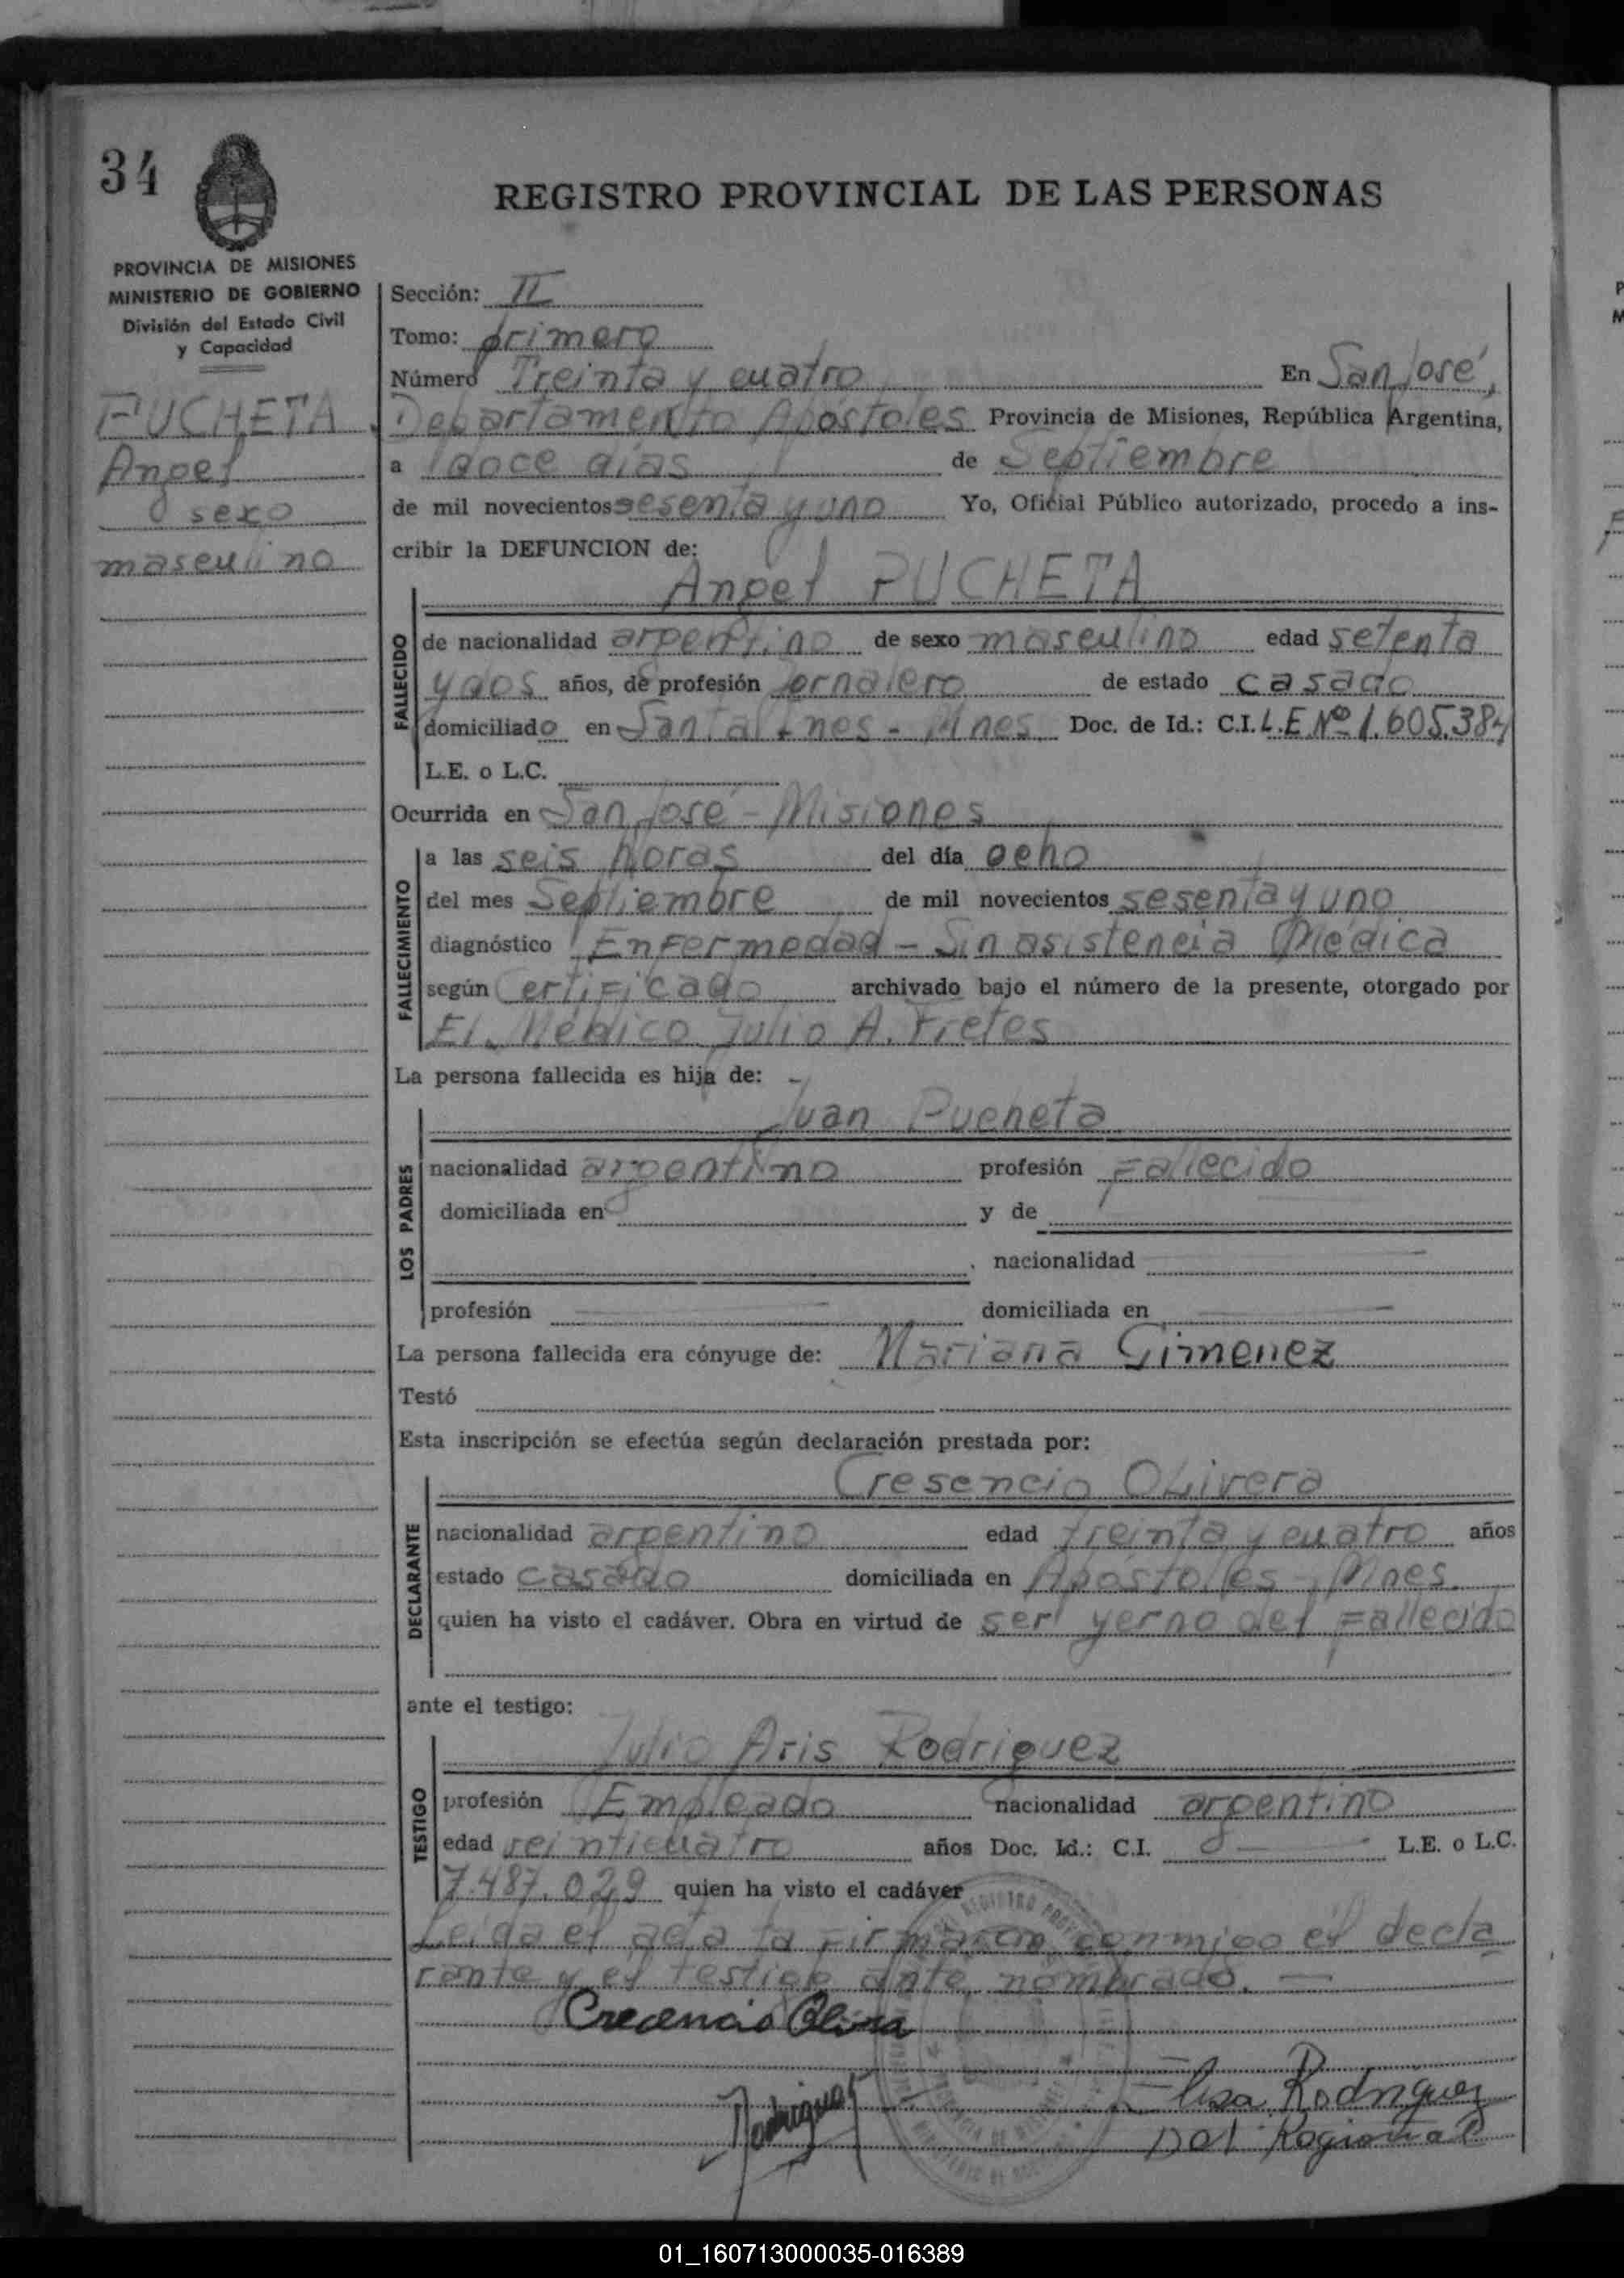 34
REGISTRO PROVINCIAL DE LAS PERSONAS
PROVINCIA DE MISIONES
MINISTERIO DE GOBIERNO
División del Estado Civil
y Capacidad
PUCHETA
Angel
sexo
masculino
Sección: II
Tomo: primero
Número Treinta y cuatro En San José,
Departamento Apóstoles Provincia de Misiones, República Argentina,
a doce días de Septiembre
de mil novecientos sesenta y uno Yo, Oficial Público autorizado, procedo a ins-
cribir la DEFUNCION de:
Angel PUCHETA
FALLECIDO
de nacionalidad argentino de sexo masculino edad setenta
y dos años, de profesión Jornalero de estado casado
domiciliado en Santa Ines - Mnes Doc. de Id.: C.I. L.E Nº 1.605.384
L.E. o L.C.
Ocurrida en San José - Misiones
FALLECIMIENTO
a las seis horas del día ocho
del mes Septiembre de mil novecientos sesenta y uno
diagnóstico Enfermedad - Sin asistencia Médica
según Certificado archivado bajo el número de la presente, otorgado por
El Médico Julio A. Fretes
La persona fallecida es hija de:
Juan Pucheta
LOS PADRES
nacionalidad argentino profesión Fallecido
domiciliada en y de
nacionalidad
profesión domiciliada en
La persona fallecida era cónyuge de: Mariana Gimenez
Testó
Esta inscripción se efectúa según declaración prestada por:
Cresencio Olivera
DECLARANTE
nacionalidad argentino edad treinta y cuatro años
estado casado domiciliada en Apóstoles - Mnes.
quien ha visto el cadáver. Obra en virtud de ser yerno del Fallecido
ante el testigo:
Julio Aris Rodriguez
TESTIGO
profesión Empleado nacionalidad argentino
edad veinticuatro años Doc. Id.: C.I. L.E. o L.C.
7.487.029 quien ha visto el cadáver
Leída el acta la firmaron conmigo el decla
rante y el testigo ante nombrado. —
Crecencio Olivera
Elisa Rodriguez
Rodriguez
01_160713000035-016389